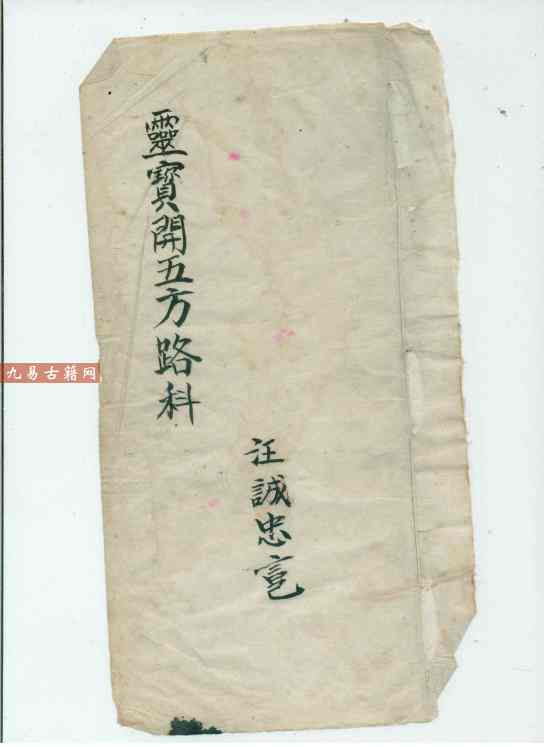 靈寳開五方路科
汪誠忠
九易古籍网